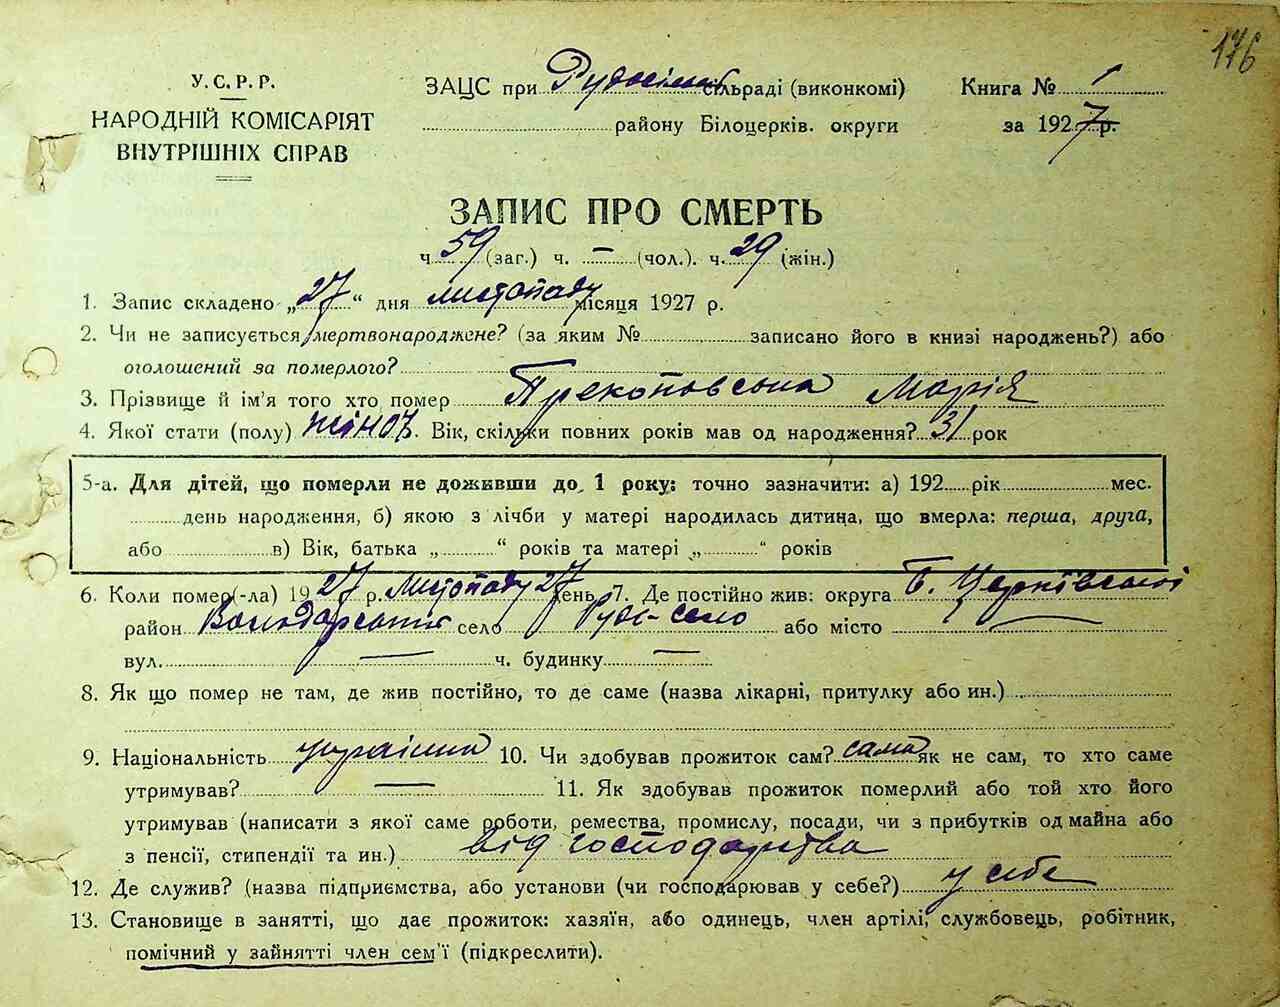 176
У.С.Р.Р.
НАРОДНІЙ КОМІСАРІЯТ
ВНУТРІШНІХ СПРАВ
ЗАЦС при Рудосільській сільраді (виконкомі)
району Білоцерків. округи
Книга № 1
за 1927 р.
ЗАПИС ПРО СМЕРТЬ
ч. 59 (заг.) ч. – (чол.). ч. 29 (жін.)
1. Запис складено „27“ дня листопаду місяця 1927 р.
2. Чи не записується мертвонароджене? (за яким № записано його в книзі народжень?) або
оголошений за померлого?
3. Прізвище й ім'я того хто помер Прекоповська Марія
4. Якої стати (полу) жіноч. Вік, скільки повних років мав од народження? 31 рок
5-а. Для дітей, що померли не доживши до 1 року: точно зазначити: а) 192 рік мес.
день народження, б) якою з лічби у матері народилась дитина, що вмерла: перша, друга,
або в) Вік, батька „ “ років та матері „ “ років
6. Коли помер(-ла) 1927 р. листопаду 27 день 7. Де постійно жив: округа Б. Церківської
район Володарський село Руде-село або місто —
вул. — ч. будинку —
8. Як що помер не там, де жив постійно, то де саме (назва лікарні, притулку або ин.)
9. Національність українка 10. Чи здобував прожиток сам? сама як не сам, то хто саме
утримував? — 11. Як здобував прожиток померлий або той хто його
утримував (написати з якої саме роботи, ремества, промислу, посади, чи з прибутків од майна або
з пенсії, стипендії та ин.) від господарства
12. Де служив? (назва підприємства, або установи (чи господарював у себе?) у себе
13. Становище в занятті, що дає прожиток: хазяїн, або одинець, член артілі, службовець, робітник,
помічний у зайнятті член сем'ї (підкреслити).